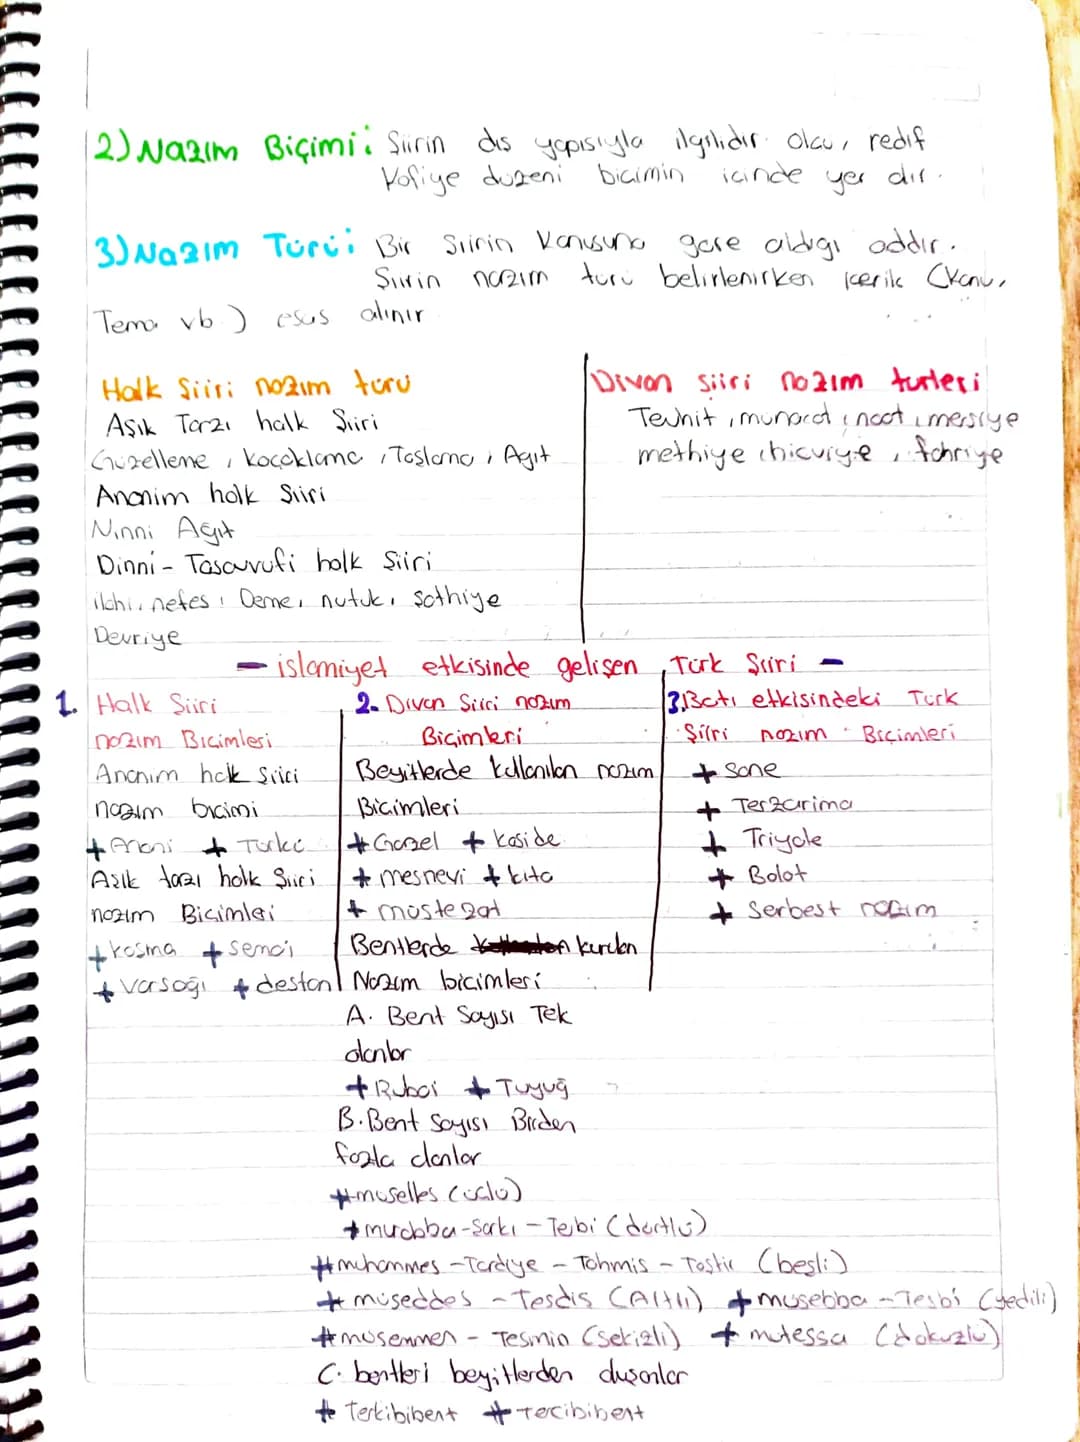 2) Nazım Biçimi: Şiirin dış yapısıyla ilgilidir. Ölçü, redif
Kafiye düzeni biçimin içinde yer dır.
3) Nazım Türü: Bir Şiirin Konusuna göre aldığı addır.
Şiirin nazım türü belirlenirken içerik (Konu,
Tema vb) esas alınır
Halk Şiiri nazım türü
Aşık Tarzı halk Şiiri
Güzelleme, Koçaklama, Taşlama, Ağıt
Anonim halk Şiiri
Ninni Ağıt
Dinni - Tasavvufi halk Şiiri
ilahi, nefes, Deme, nutuk, şathiye
Devriye
Divan şiiri nazım türleri
Tevhit, münacat, naat, mersiye
methiye, hicviye, fahriye
- islamiyet etkisinde gelişen Türk Şiiri -
1. Halk Şiiri
nazım Biçimleri
Anonim halk şiiri
nazım biçimi
+ Mani + Türkü
Aşık tarzı halk Şiiri
nazım Biçimleri
+ koşma + semai
+ varsağı + destan
2- Divan Şiiri nazım
Biçimleri
Beyitlerde kullanılan nazım
Biçimleri
+ Gazel + kaside
+ mesnevi + kıta
+ müstezat
Bentlerde kurulan
Nazım biçimleri
A. Bent Sayısı Tek
olanlar
+ Rubai + Tuyuğ
B. Bent Sayısı Birden
fazla olanlar
+ müselles (üçlü)
+ murabba - Şarkı - Terbi (dörtlü)
+ muhammes - Tardiye - Tahmis - Taştir (beşli)
+ müseddes - Tesdis (Altılı) + müsebba - Tesbi (yedili)
+ müsemmen - Tesmin (sekizli) + mütessa (dokuzlu)
C. bentleri beyitlerden duşanlar
+ Terkibibent + Tecibibent
3. Batı etkisindeki Türk
Şiiri nazım Biçimleri
+ Sone
+ Terzarima
+ Triyole
+ Balat
+ Serbest nazım